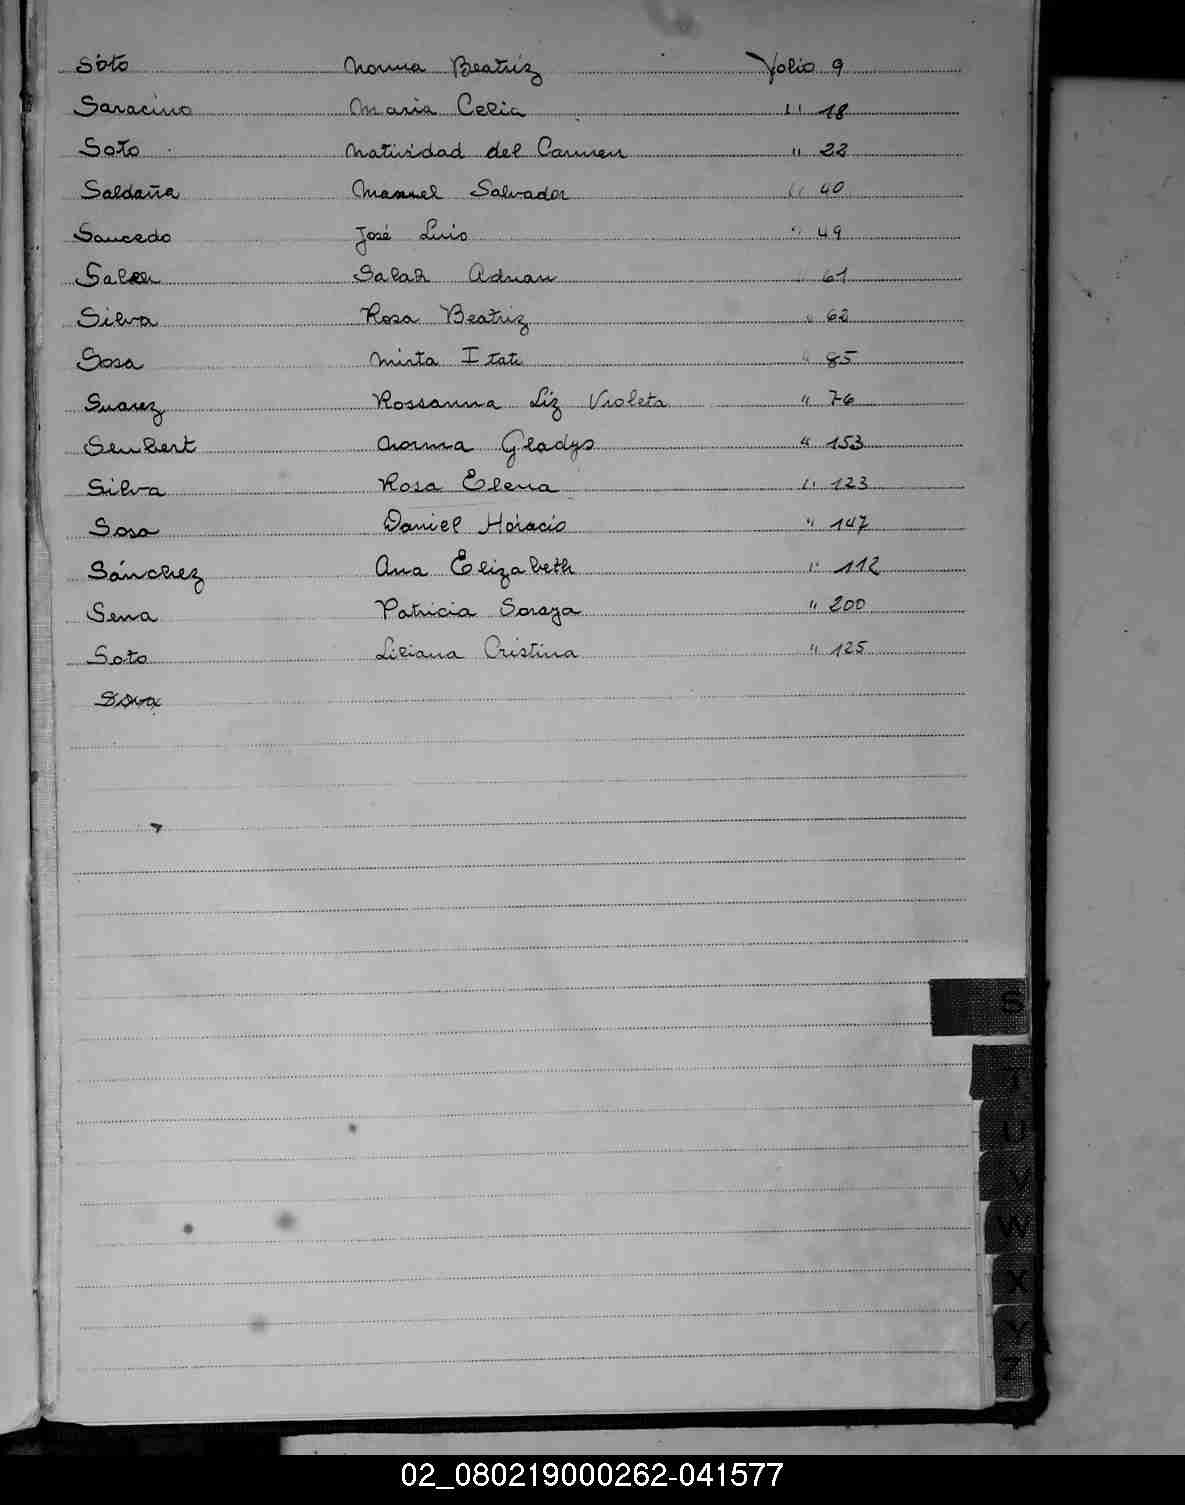 Soto Norma Beatriz Folio 9
Saracino Maria Celia " 18
Soto Natividad del Carmen " 22
Saldaña Manuel Salvador " 40
Saucedo José Luis " 49
Salah Adnan " 61
Silva Rosa Beatriz " 62
Sosa Mirta Itati " 85
Suarez Rossanna Liz Violeta " 76
Seubert Norma Gladys " 153
Silva Rosa Elena " 123
Sosa Daniel Horacio " 147
Sánchez Ana Elizabeth " 112
Sena Patricia Soraya " 200
Soto Liliana Cristina " 125
S
T
U
V
W
X
Y
Z
02_080219000262-041577